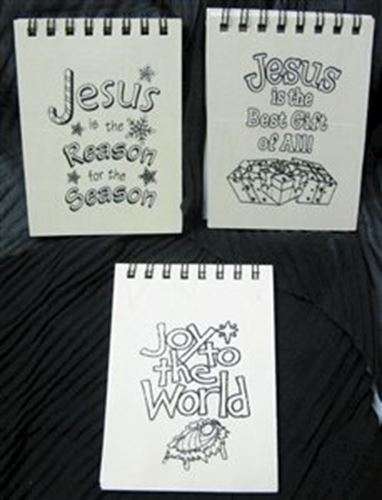 Jesus
is the
Reason
for the
Season
Jesus
is the
Best Gift
of All!
Joy to
the
World